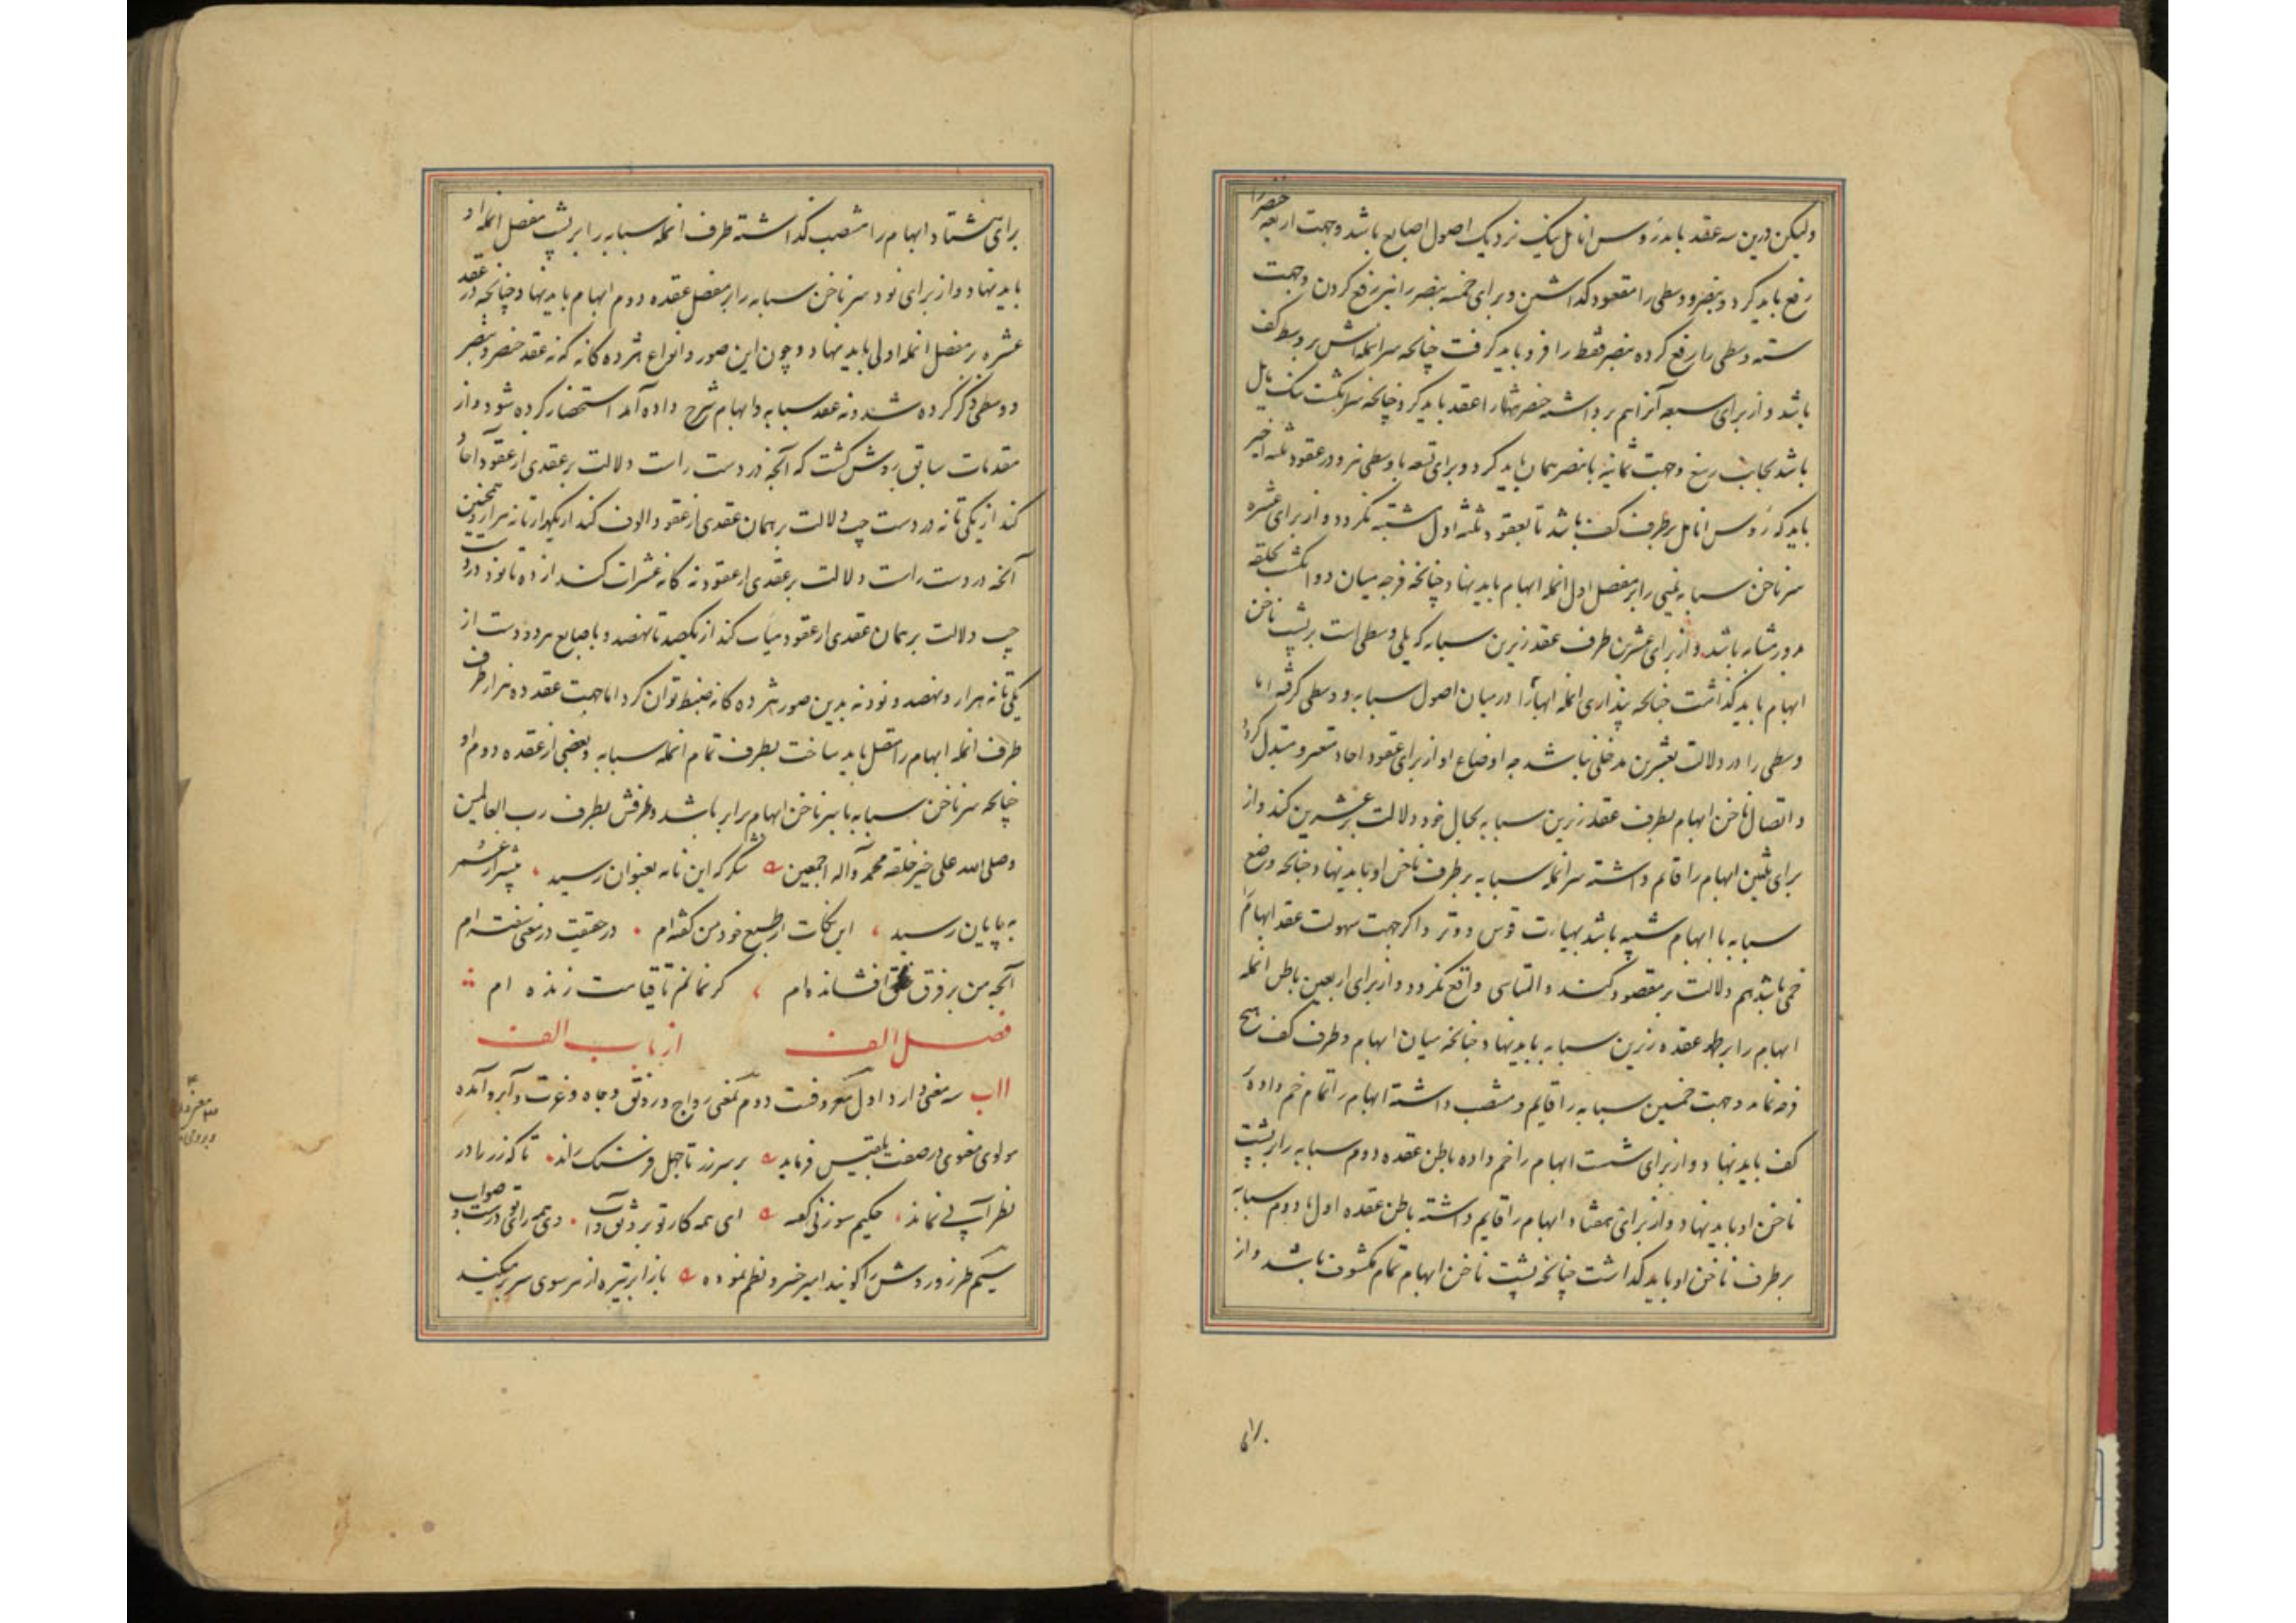 ولیکن درین سه عقد باید رؤس انامل نیک نزدیک اصول اصابع باشد و جهت اربعه خنصر را
رفع باید کرد و بنصر و وسطی را معقود گذاشتن و برای خمسه بنصر را نیز رفع کردن و جهت
سته وسطی را رفع کرده بنصر فقط را فرو باید گرفت چنانچه سر انمله‌اش بر وسط کف
باشد و از برای سبعه آنرا هم برداشته خنصر تنها را عقد باید کرد چنانچه سر انگشت نیک مایل
باشد بجانب رسغ و جهت ثمانیه با بنصر همان باید کرد و برای تسعه با وسطی نیز و در عقود ثلثه اخیر
باید که رؤس انامل بر طرف کف باشد تا بعقود ثلثه اول مشتبه نگردد و از برای عشره
سر ناخن سبابه یمنی را بر مفصل اول انمله ابهام باید نهاد چنانچه فرجه میان دو انگشت بحلقه
مدور مشابه باشد و از برای عشرین طرف عقد زیرین سبابه که یلی وسطی است بر پشت ناخن
ابهام باید گذاشت چنانچه پنداری انمله ابهام را در میان اصول سبابه و وسطی گرفته اما
وسطی را در دلالت بعشرین مدخلی نباشد چه اوضاع او از برای عقود احاد متغیر و متبدل گردد
و اتصال ناخن ابهام بطرف عقد زیرین سبابه بحال خود دلالت بر عشرین کند و از
برای ثلثین ابهام را قائم داشته سر انمله سبابه بر طرف ناخن او باید نهاد چنانچه وضع
سبابه با ابهام شبیه باشد بهیات قوس و وتر و اگر جهت سهولت عقد ابهام را
خمی باشد هم دلالت بر مقصود کند و التباسی واقع نگردد و از برای اربعین باطن انمله
ابهام را بر ظهر عقده زیرین سبابه باید نهاد چنانچه میان ابهام و طرف کف هیچ
فرجه نماند و جهت خمسین سبابه را قایم و منتصب داشته ابهام را تمام خم داده بر
کف باید نهاد و از برای شست ابهام را خم داده باطن عقده دوم سبابه را بر پشت
ناخن او باید نهاد و از برای هفتاد ابهام را قایم داشته باطن عقده اول یا دوم سبابه
بر طرف ناخن او باید گذاشت چنانچه پشت ناخن ابهام تمام مکشوف باشد و از
برای هشتاد ابهام را منتصب گذاشته طرف انمله سبابه را بر پشت مفصل انمله او
باید نهاد و از برای نود سر ناخن سبابه را بر مفصل عقده دوم ابهام باید نهاد چنانچه در عقد
عشره بر مفصل انمله اولی باید نهاد و چون این صور و انواع هژده گانه که نه عقد خنصر و بنصر
و وسطی ذکر کرده شد و نه عقد سبابه و ابهام شرح داده آمد استحضار کرده شود و از
مقدمات سابق روشن گشت که آنچه در دست راست دلالت بر عقدی از عقود آحاد
کند از یکی تا نه در دست چپ دلالت بر همان عقدی از عقود الوف کند از یکهزار تا نه هزار و همچنین
آنچه در دست راست دلالت بر عقدی از عقود نه گانه عشرات کند از ده تا نود در دست
چپ دلالت بر همان عقدی از عقود میات کند از یکصد تا نهصد و باصابع هر دو دست از
یکی تا نه هزار و نهصد و نود نه بدین صور هژده گانه ضبط توان کرد اما جهت عقد ده هزار طرف
طرف انمله ابهام را متصل باید ساخت بطرف تمام انمله سبابه و بعضی از عقده دوم او
چنانچه سر ناخن سبابه با سر ناخن ابهام برابر باشد و طرفش بطرف رب العالمین
وصلی الله علی خیر خلقه محمد و آله اجمعین شکر که این نامه بعنوان رسید پیشتر از عمر
به پایان رسید این نکات از طبع خود من گفته‌ام در حقیقت در معنی سفته‌ام
آنچه من بر فرق افشانده‌ام گر نمانم تا قیامت زنده ام
فصل الف از باب الف
ااب سه معنی دارد اول معروفست دوم بمعنی رواج و رونق و جاه و عزت و آبرو آمده
مولوی معنوی در صفت بلقیس فرماید بر سر زر تا چهل فرسنگ راند تا که زر را در
نظر آبی نماند حکیم سوزنی گفته ای همه کار تو بر رونق و آب وی همه رای تو درست و صواب
سیم طرز و روش را گویند امیر خسرو نظم نموده باز ابر تیره از هر سوی سر بر میکند